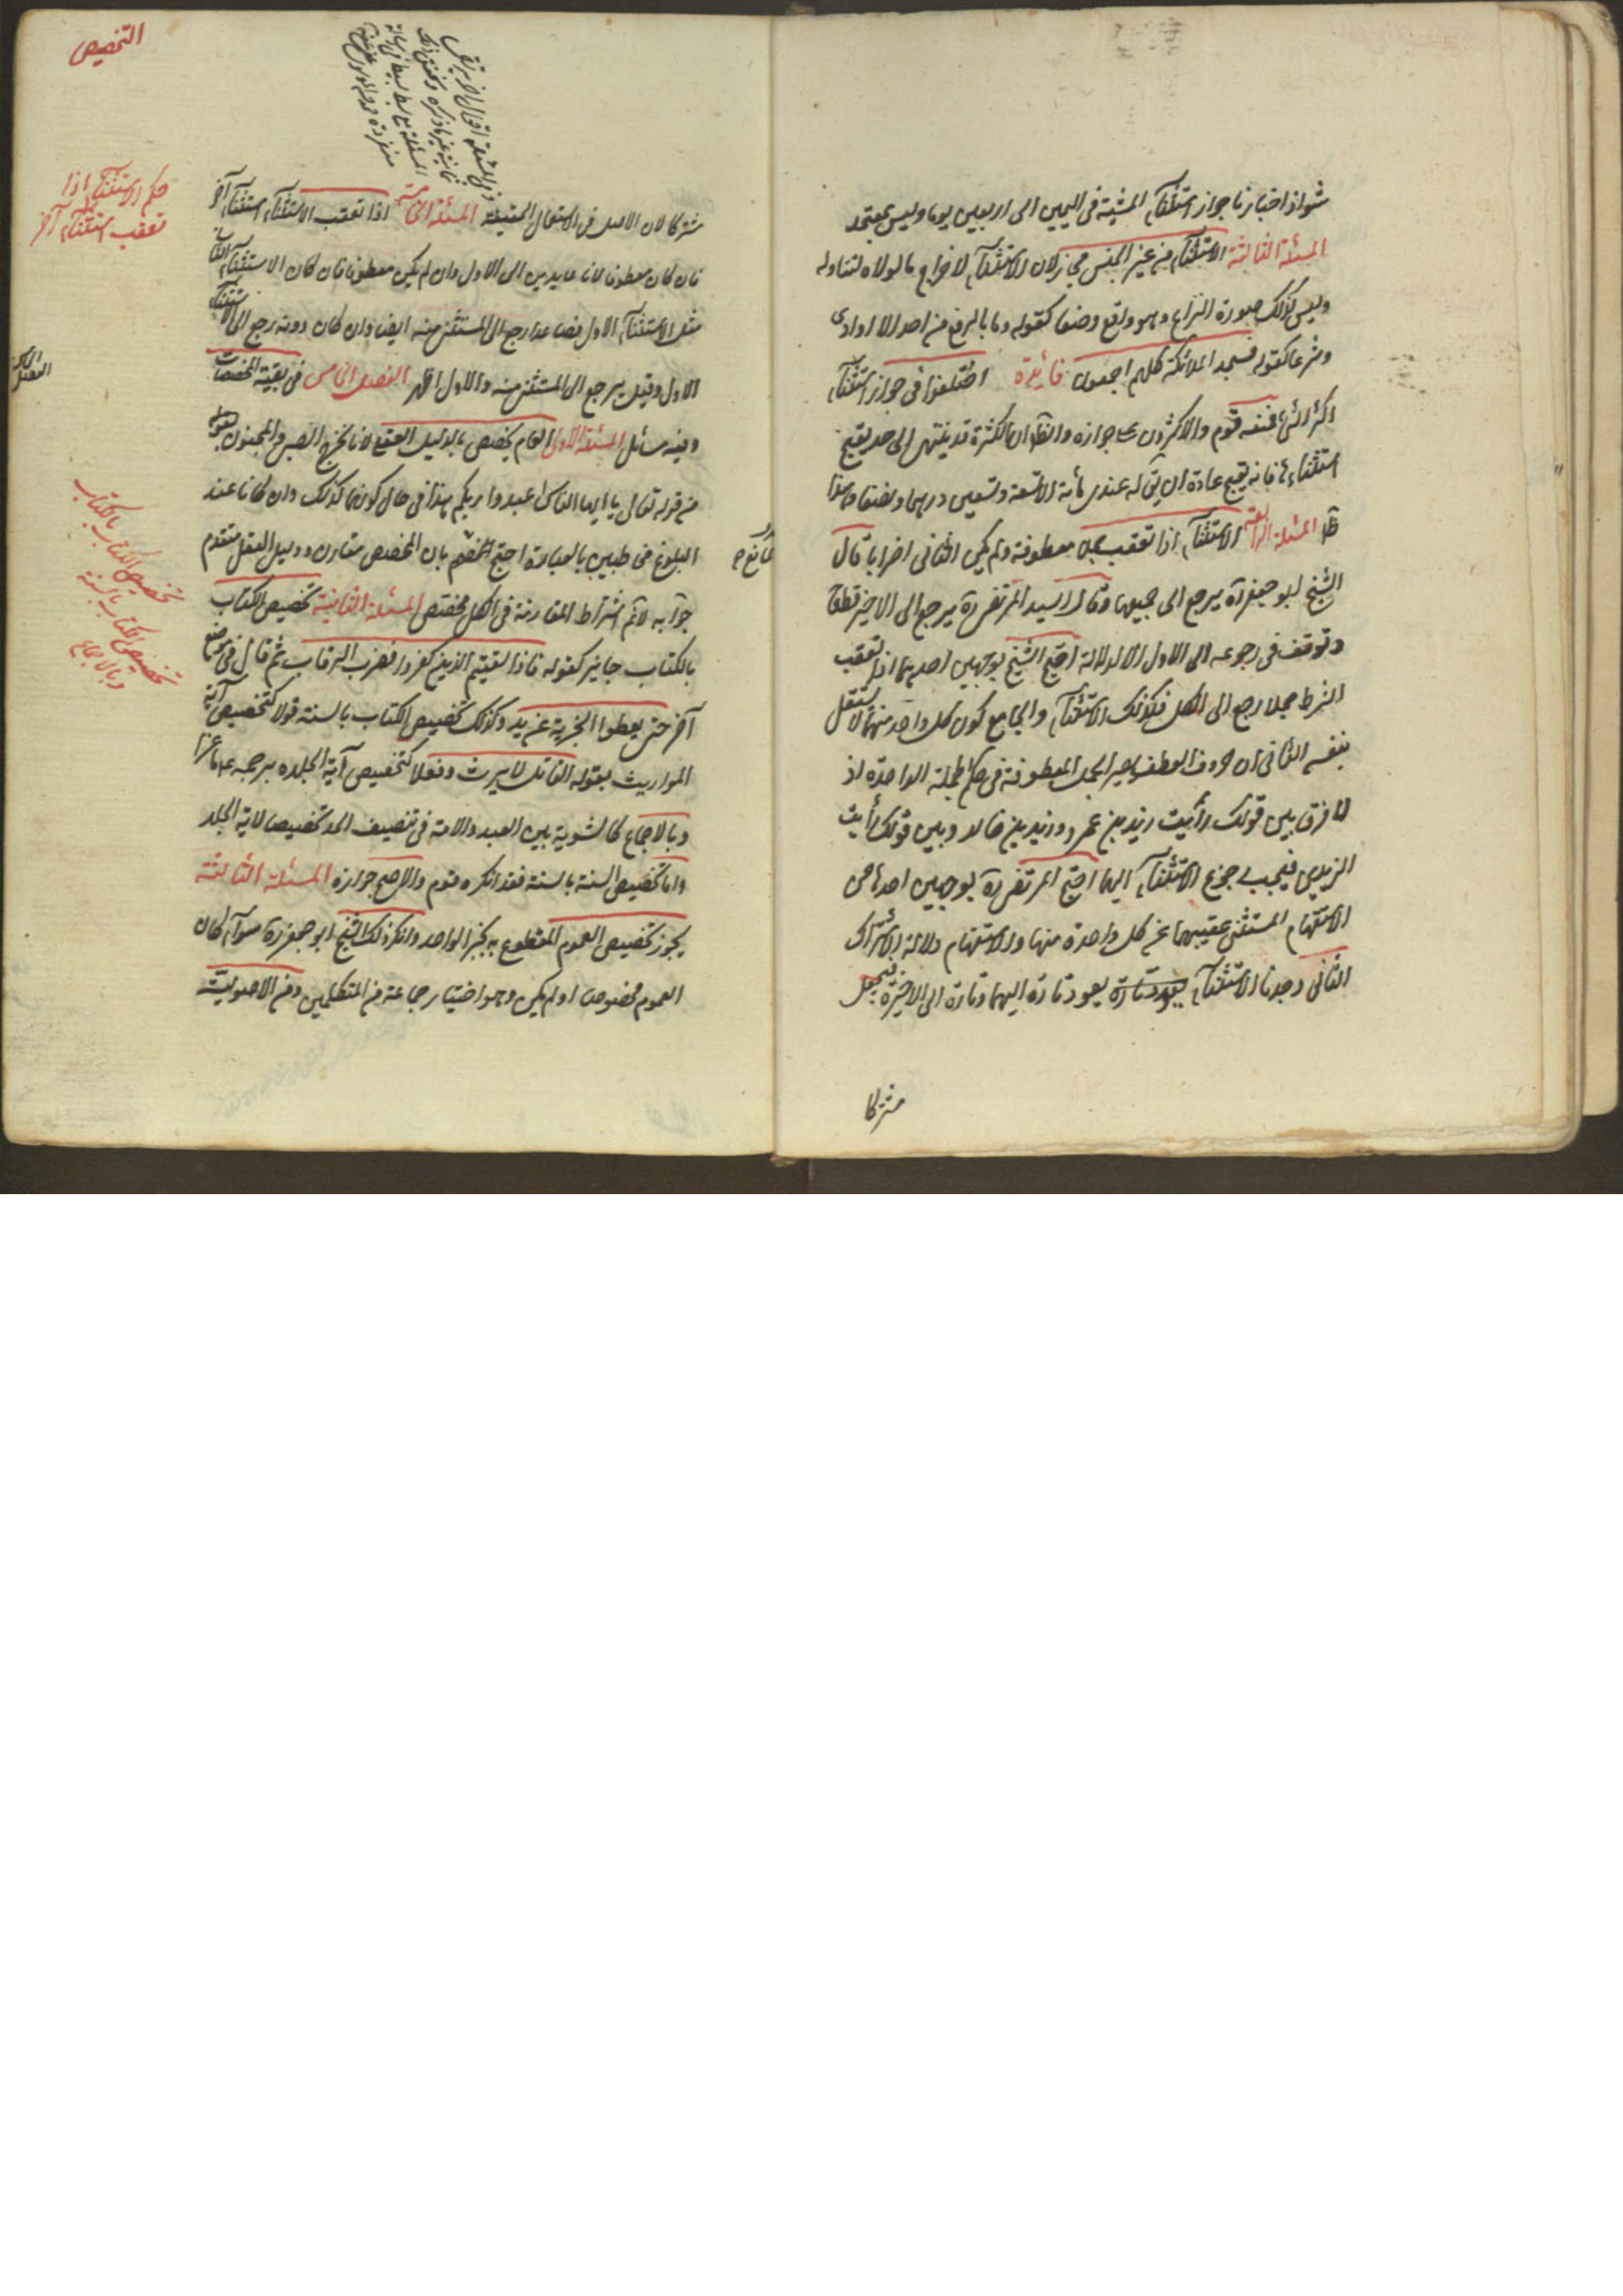 شواذ اخبارنا جواز استثنآء المشية فى اليمين الى اربعين يوما وليس بمعتمد
المسئلة الثالثة الاستثنآء من غير الجنس مجاز لان الاستثنآء لاخراج ما لولاه لتناوله
وليس كذلك صورة النزاع وهو واقع وضعا كقوله وما بالربع من احد الا اوارى
وشرعا كقوله فسجد الملائكة كلهم اجمعون فائدة اختلفوا فى جواز استثنآء
اكثر الشئ فمنعه قوم والاكثرون على جوازه والظ ان الكثرة قد ينتهى الى حد يقبح
استثناءها فانه يقبح عادة ان يق له عندى مائة الا تسعة وتسعين درهما ونصفا وهذا
ظ المسئلة الرابعة الاستثنآء اذا تعقب جملا معطوفة ولم يكن الثانى اضرابا قال
الشيخ ابو جعفر ره يرجع الى جميعها وقال السيد المرتضى ره يرجع الى الاخير قطعا
وتوقف فى رجوعه الى الاول الا لدلالة احتج الشيخ بوجهين احدهما اذا تعقب
الشرط جملا رجع الى الكل فكذلك الاستثنآء والجامع كون كل واحد منهما لا يستقل
بنفسه الثانى ان حروف العطف يصير الجمل المعطوفة فى حكم الجملة الواحدة اذ
لا فرق بين قولك رأيت زيد بن عمرو وزيد بن خالد وبين قولك رأيت
الزيدين فيجب رجوع الاستثنآء اليها احتج المرتضى ره بوجهين احدهما حسن
الاستفهام المستثنى عقيبهما عن كل واحدة منها والاستفهام دلالة الاشتراك
الثانى وجدنا الاستثنآء يعود تارة يعود تارة اليهما وتارة الى الاخيرة فيجعل
مشتركا
التخصيص
حكم الاستثنآء اذا
تعقب استثنآء آخر
مشتركا لان الاصل فى الاستعمال الحقيقة المسئلة الخامسة اذا تعقب الاستثنآء استثنآء آخر
فان كان معطوفا كانا عايدين الى الاول وان لم يكن معطوفا فان كان الاستثنآء الثانى
مثل الاستثنآء الاول فصاعدا رجع الى المستثنى منه ايضا وان كان دونه رجع الى الاستثنآء
الاول وقيل يرجع الى المستثنى منه والاول اظهر الفصل الخامس فى بقية المخصصات
وفيه مسائل المسئلة الاولى العام يخصص بالدليل العقلى لانا نخرج الصبى والمجنون
من قوله تعالى يا ايها الناس اعبدوا ربكم هذا فى حال كونهما كذلك وان كانا عند
البلوغ مخاطبين بالعبادة احتج الخصم بان المخصص مقارن ودليل العقل متقدم
جوابه لا نم اشتراط المقارنة فى الكل مخصص المسئلة الثانية تخصيص الكتاب
بالكتاب جايز كقوله فاذا لقيتم الذين كفروا فضرب الرقاب ثم قال فى موضع
آخر حتى يعطوا الجزية عن يد وكذلك تخصيص الكتاب بالسنة قولا كتخصيص آية
المواريث بقوله القاتل لا يرث وفعلا كتخصيص آية الجلد برجمه ماعزا
وبالاجماع كالتسوية بين العبد والامة فى تنصيف الحد تخصيصا لاية الجلد
واما تخصيص السنة بالسنة فقد انكره قوم والاصح جوازه المسئلة الثالثة
يجوز تخصيص العموم المقطوع به بخبر الواحد وانكر ذلك الشيخ ابو جعفر ره سوآء كان
العموم مخصوصا او لم يكن وهو اختيار جماعة من المتكلمين ومن الاصوليين
تخصيص الكتاب بالكتاب
تخصيص الكتاب بالسنة
وبالاجماع